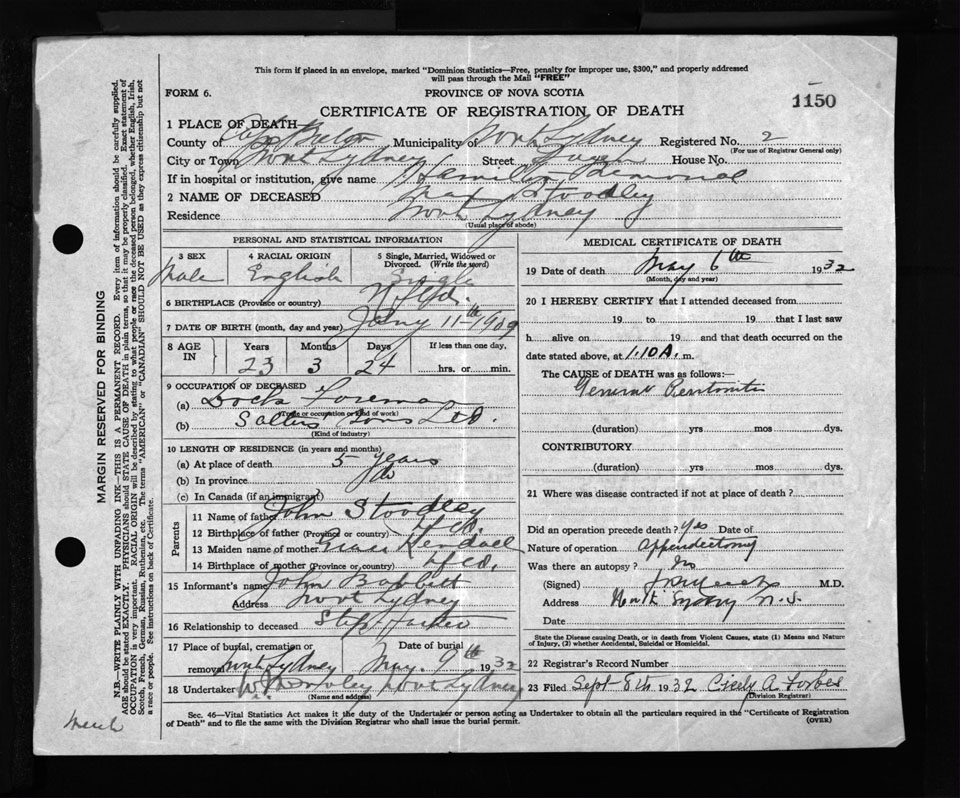 This form if placed in an envelope, marked "Dominion Statistics—Free, penalty for improper use, $300," and properly addressed
will pass through the Mail "FREE"
FORM 6. PROVINCE OF NOVA SCOTIA
CERTIFICATE OF REGISTRATION OF DEATH 1150
1 PLACE OF DEATH—
County of Cape Breton Municipality of North Sydney Registered No. 2
(For use of Registrar General only)
City or Town North Sydney Street House No.
If in hospital or institution, give name Hamilton Memorial
2 NAME OF DECEASED Stoodley
Residence North Sydney
(Usual place of abode)
PERSONAL AND STATISTICAL INFORMATION
3 SEX 4 RACIAL ORIGIN 5 Single, Married, Widowed or
Divorced. (Write the word)
Male English Single
6 BIRTHPLACE (Province or country) Nfld.
7 DATE OF BIRTH (month, day and year) Jany 11th 1909
8 AGE IN Years Months Days If less than one day,
23 3 24 hrs. or min.
9 OCCUPATION OF DECEASED
(a) Dock Foreman
(Trade or occupation or kind of work)
(b) Salter Sons Ltd.
(Kind of industry)
10 LENGTH OF RESIDENCE (in years and months)
(a) At place of death 5 years
(b) In province do
(c) In Canada (if an immigrant)
Parents
11 Name of father John Stoodley
12 Birthplace of father (Province or country)
13 Maiden name of mother Kendall
14 Birthplace of mother (Province or country) Nfld.
15 Informant's name John Babbitt
Address North Sydney
16 Relationship to deceased Step Father
17 Place of burial, cremation or Date of burial
removal North Sydney May 9th 1932
18 Undertaker North Sydney
(Name and address)
MEDICAL CERTIFICATE OF DEATH
19 Date of death May 6th 1932
(Month, day and year)
20 I HEREBY CERTIFY that I attended deceased from
19 to 19 that I last saw
h alive on 19 and that death occurred on the
date stated above, at 1.10 A. m.
The CAUSE of DEATH was as follows:—
General Peritonitis
(duration) yrs mos dys.
CONTRIBUTORY
(duration) yrs mos dys.
21 Where was disease contracted if not at place of death?
Did an operation precede death? Yes Date of
Nature of operation Appendectomy
Was there an autopsy? No
(Signed) M.D.
Address North Sydney N.S.
Date
State the Disease causing Death, or in death from Violent Causes, state (1) Means and Nature
of Injury, (2) whether Accidental, Suicidal or Homicidal.
22 Registrar's Record Number
23 Filed Sept 8th 1932 Cicely A. Forbes
(Division Registrar)
Sec. 46—Vital Statistics Act makes it the duty of the Undertaker or person acting as Undertaker to obtain all the particulars required in the "Certificate of Registration
of Death" and to file the same with the Division Registrar who shall issue the burial permit. (OVER)
MARGIN RESERVED FOR BINDING
N.B.—WRITE PLAINLY WITH UNFADING INK—THIS IS A PERMANENT RECORD. Every item of information should be carefully supplied.
AGE should be stated EXACTLY. PHYSICIANS should STATE CAUSE OF DEATH in plain terms, so that it may be properly classified. Exact statement of
OCCUPATION is very important. RACIAL ORIGIN will be described by stating to what people or race the deceased person belonged, whether English, Irish,
Scotch, French, German, Russian, Ruthenian, etc. The terms "AMERICAN" or "CANADIAN" SHOULD NOT BE USED as they express citizenship but not
a race or people. See instructions on back of Certificate.